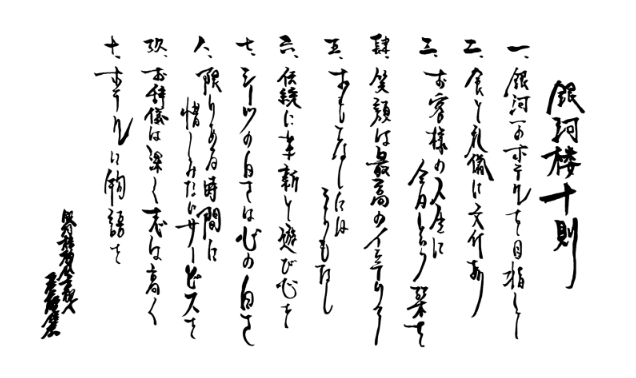 銀河楼十則
一、銀河一のホテルを目指して
二、食と礼儀に文化あり
三、お客様の人生に
今日という栞を
肆、笑顔は最高のインテリア
五、おもてなしには
うらもなし
六、伝統に革新と遊び心を
七、シーツの白さは心の白さ
八、限りある時間に
惜しみないサービスを
玖、お辞儀は深く志は高く
十、ホテルに物語を